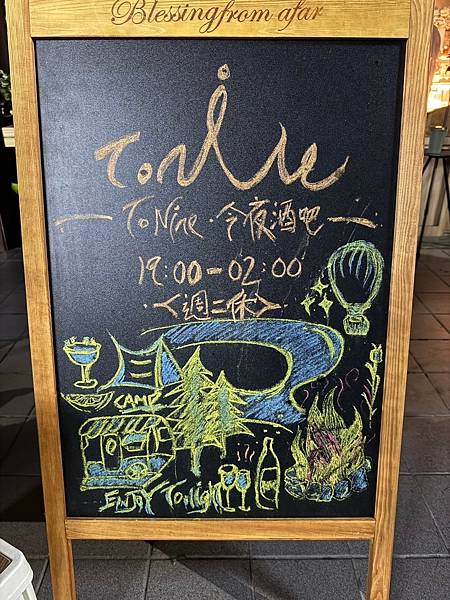 Blessing from afar
ToNine
ToNine · 今夜酒吧
19:00-02:00
<週二休>
CAMP
ENJOY Tonight